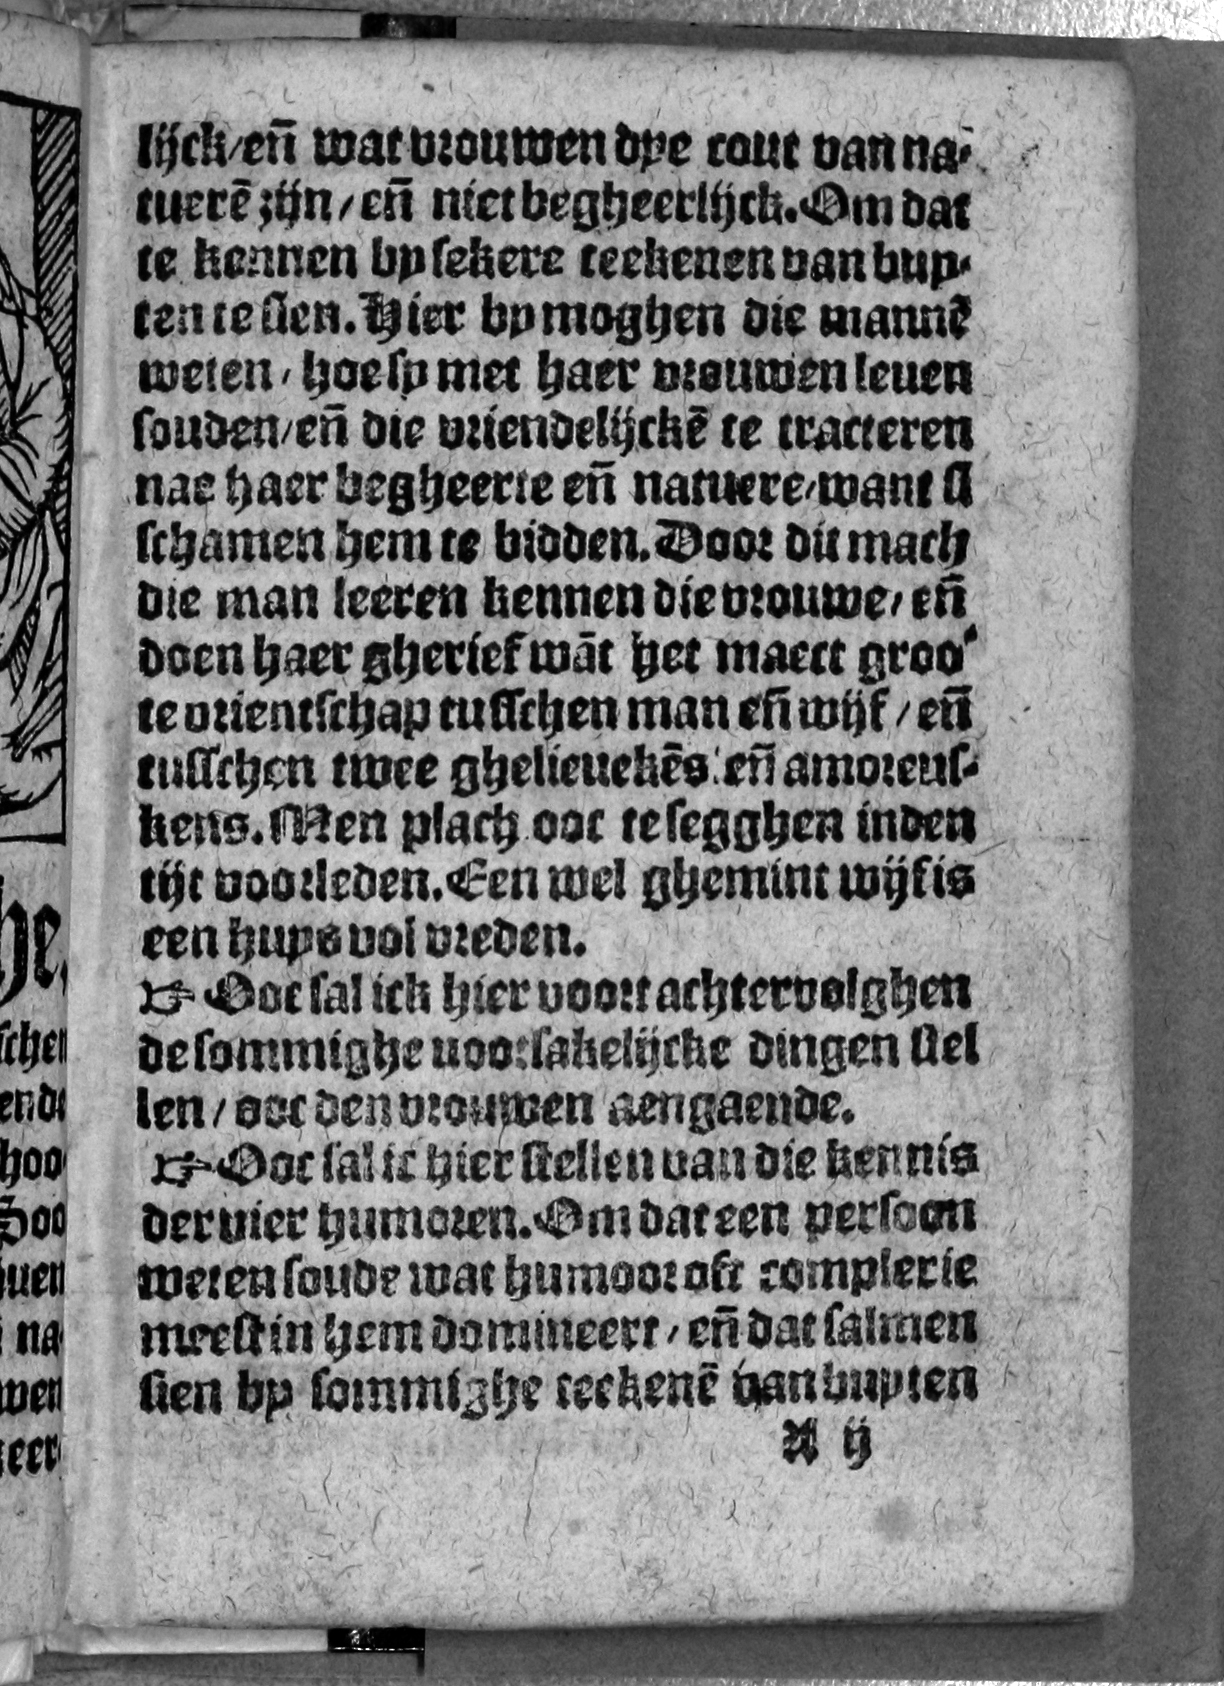 lijck/en̄ wat vrouwen dye cout van na-
tuerē zijn/en̄ niet begheerlijck. Om dat
te kennen by sekere teekenen van buy-
ten te sien. Hier by moghen die mannē
weten/ hoe sy met haer vrouwen leuen
souden/en̄ die vriendelijckē te tracteren
nae haer begheerte en̄ natuere/want si
schamen hem te bidden. Door dit mach
die man leeren kennen die vrouwe/ en̄
doen haer gherief wāt het maect groo-
te vrientschap tusschen man en̄ wijf/en̄
tusschen twee ghelieuekēs en̄ amoreus-
kens. Men plach ooc te segghen inden
tijt voorleden. Een wel ghemint wijf is
een huys vol vreden.
☞ Ooc sal ick hier voort achtervolghen
de sommighe noorsakelijcke dingen stel
len/ ooc den vrouwen aengaende.
☞ Ooc sal ic hier stellen van die kennis
der vier humoren. Om dat een persoon
weten soude wat humoor oft complexie
meest in hem domineert/ en̄ dat salmen
sien by sommighe teekenē van buyten
A ij
he,
schen
ende
hoo
Soo
uen
na
wen
eer